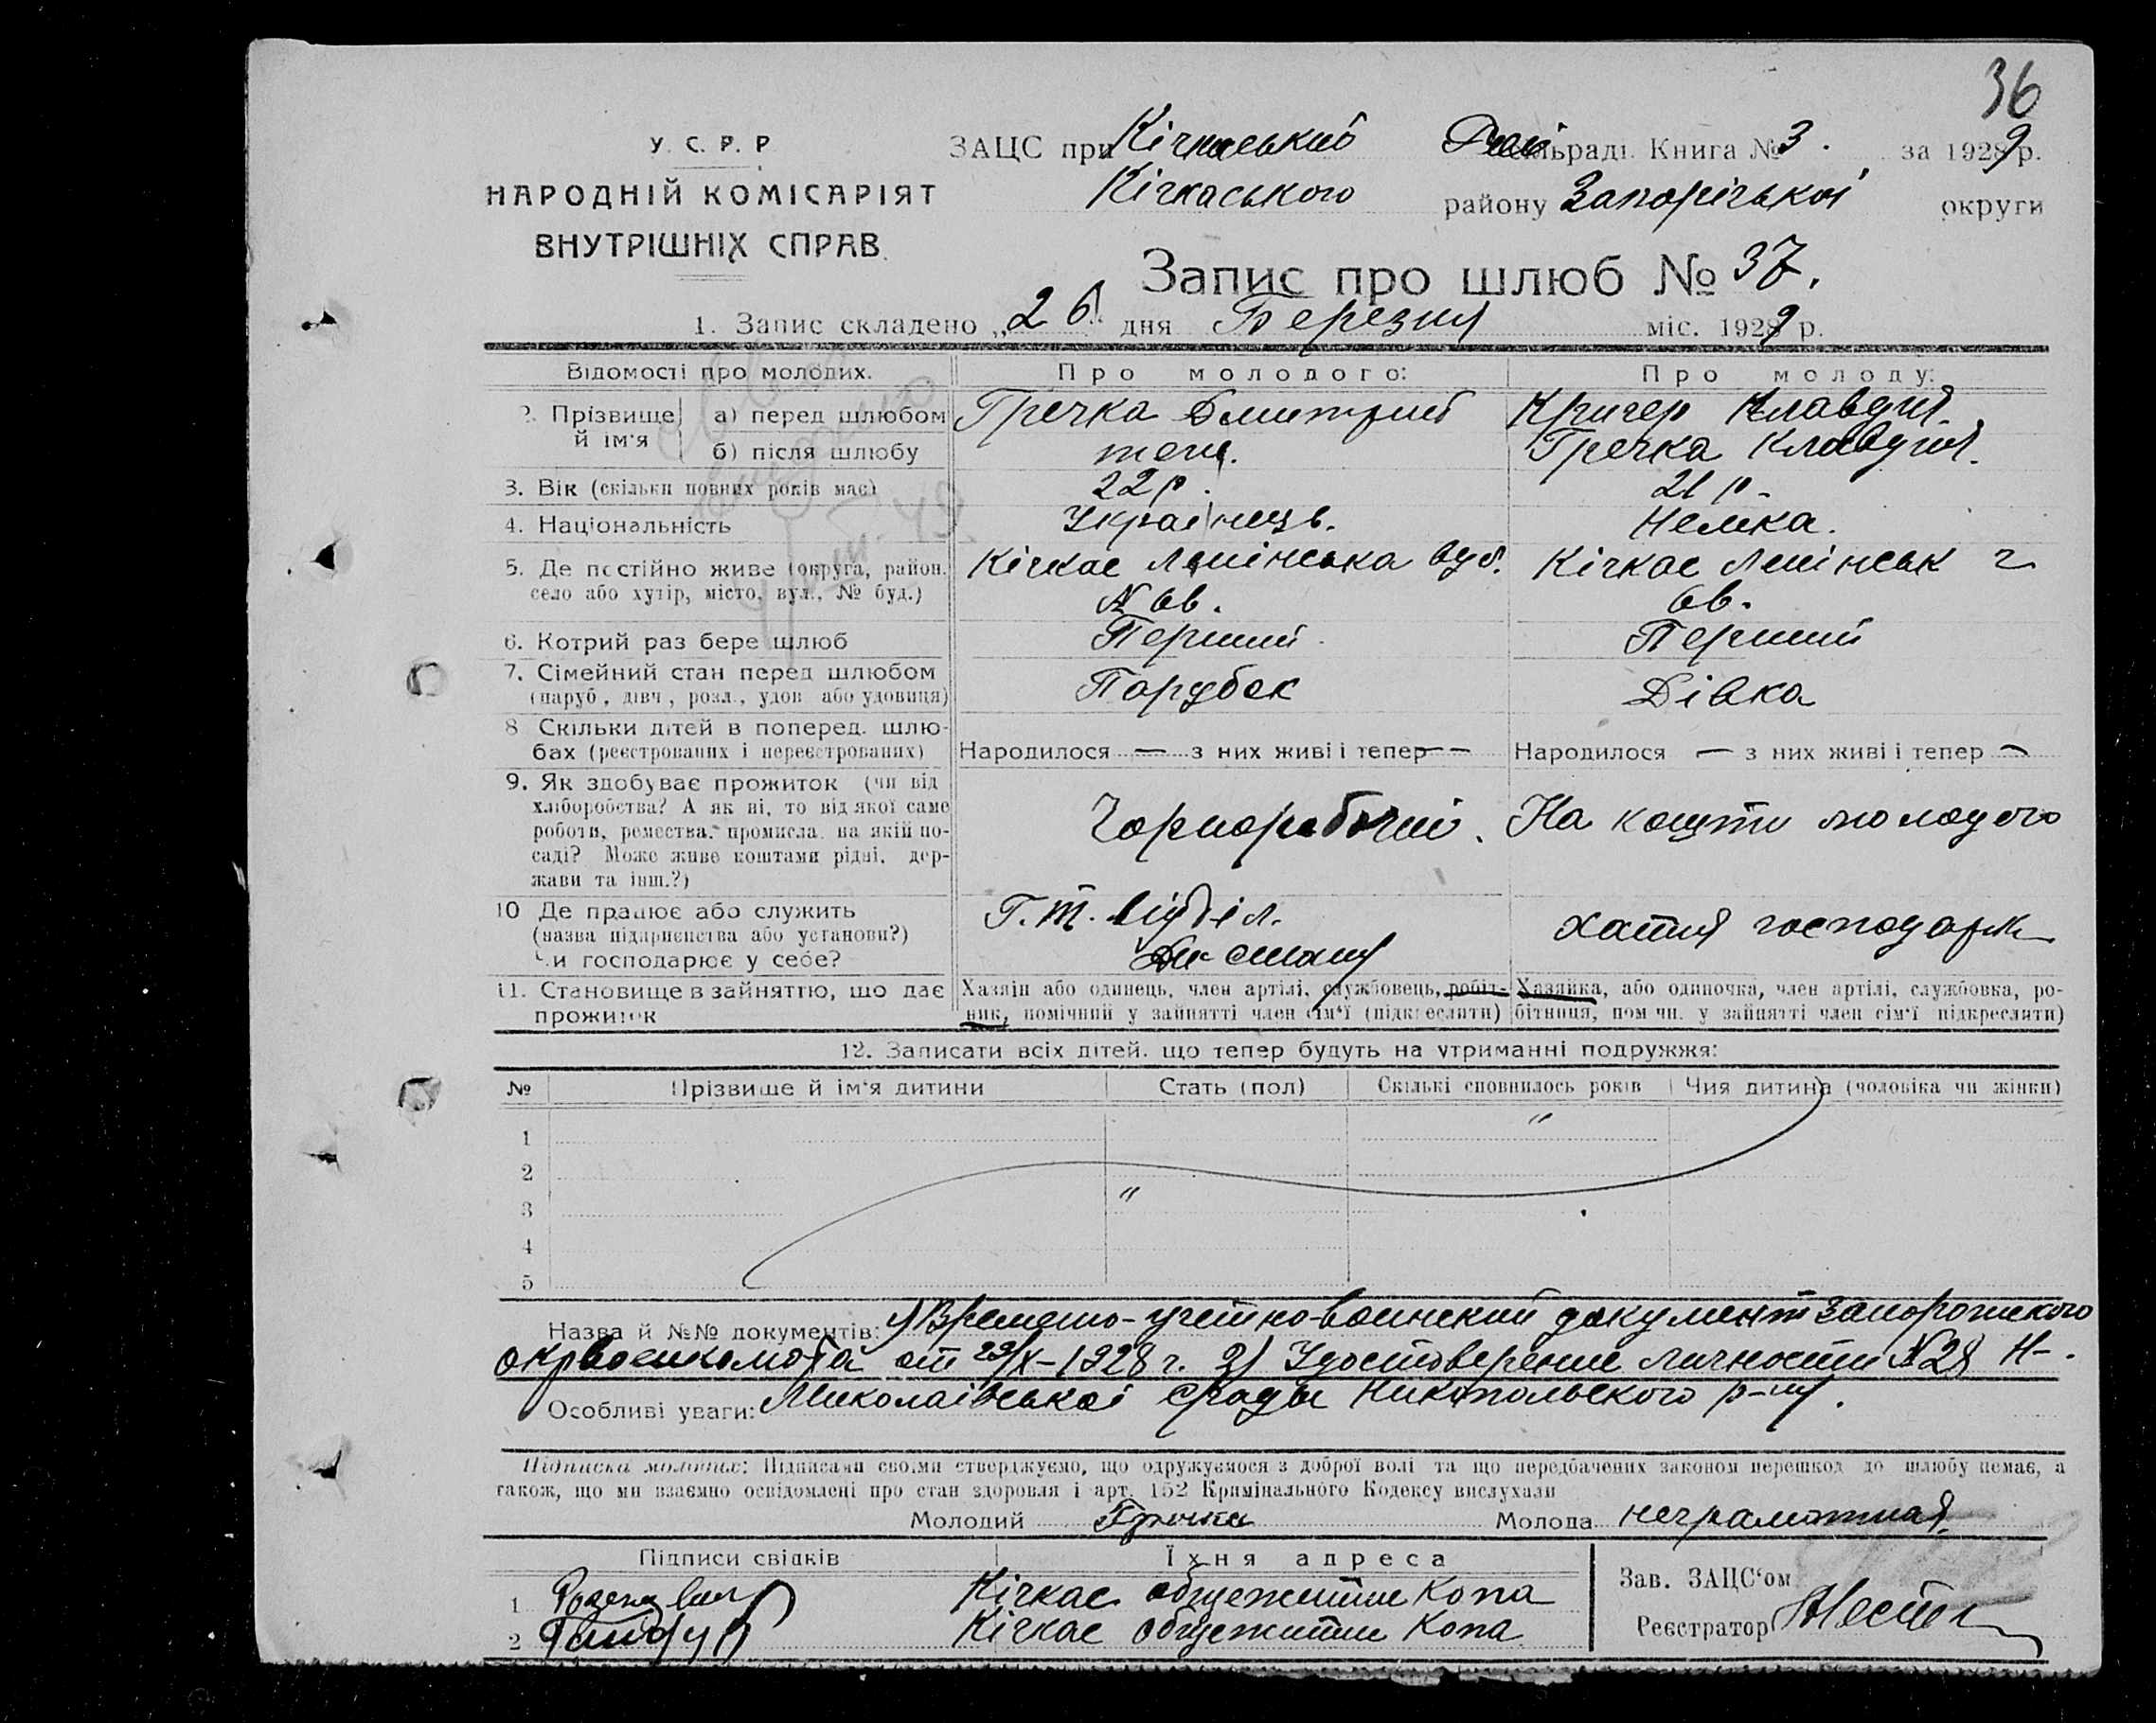 36
У. С. Р. Р
НАРОДНІЙ КОМІСАРІЯТ
ВНУТРІШНІХ СПРАВ.
ЗАЦС при Кічкаській Рай сільраді. Книга № 3. за 1929 р.
Кічкаського району Запорізької округи
Запис про шлюб № 37.
1. Запис складено „26" дня Березня міс. 1929 р.
Відомості про молодих. Про молодого: Про молоду:
2. Прізвище й ім'я а) перед шлюбом Гречка Дмитрий Кригер Клавдия.
б) після шлюбу теж. Гречка Клавдия.
3. Вік (скільки повних років має) 22 р. 21 р.
4. Національність Українець. Немка.
5. Де постійно живе (округа, район, Кічкас Ленінська вул. Кічкас Ленінськ
село або хутір, місто, вул., № буд.) № 6в. 6в.
6. Котрий раз бере шлюб Перший Перший
7. Сімейний стан перед шлюбом Парубок Дівка
(паруб., дівч., розл., удов. або удовиця)
8 Скільки дітей в поперед. шлю-
бах (реєстрованих і нереєстрованих) Народилося — з них живі і тепер — Народилося — з них живі і тепер —
9. Як здобуває прожиток (чи від
хліборобства? А як ні, то від якої саме
роботи, ремества, промисла, на якій по- Чорноробочий. На кошти молодого
саді? Може живе коштами рідні, дер-
жави та інш.?)
10 Де працює або служить Г. т. відділ.
(назва підприємства або установи?) хатня господарк
Чи господарює у себе?
11. Становище в зайняттю, що дає Хазяїн або одинець, член артілі, службовець, робіт- Хазяйка, або одиночка, член артілі, службовка, ро-
прожиток ник, помічний у зайнятті член сім'ї (підкреслити) бітниця, пом чн. у зайнятті член сім'ї підкреслити)
12. Записати всіх дітей, що тепер будуть на утриманні подружжя:
№ Прізвище й ім'я дитини Стать (пол) Скількі сповнилось років Чия дитина (чоловіка чи жінки)
1 "
2
3 "
4
5
Назва й №№ документів: 1) Временно-учетно-воинский документ Запорожского
окрвоенкомата от 29/X-1928 г. 2) Удостоверение личности № 28 Н-.
Особливі уваги: Миколаївської с/рады Никопольского р-ну.
Підписка молодих: Підписами своїми стверджуємо, що одружуємося з доброї волі та що передбачених законом перешкод до шлюбу немає, а
також, що ми взаємно освідомлені про стан здоровля і арт. 152 Кримінального Кодексу вислухали
Молодий Гречка Молода неграмотная.
Підписи свідків Їхня адреса Зав. ЗАЦС'ом
1 Кічкас общежитие Копа
2 Кічкас общежитие Копа Реєстратор